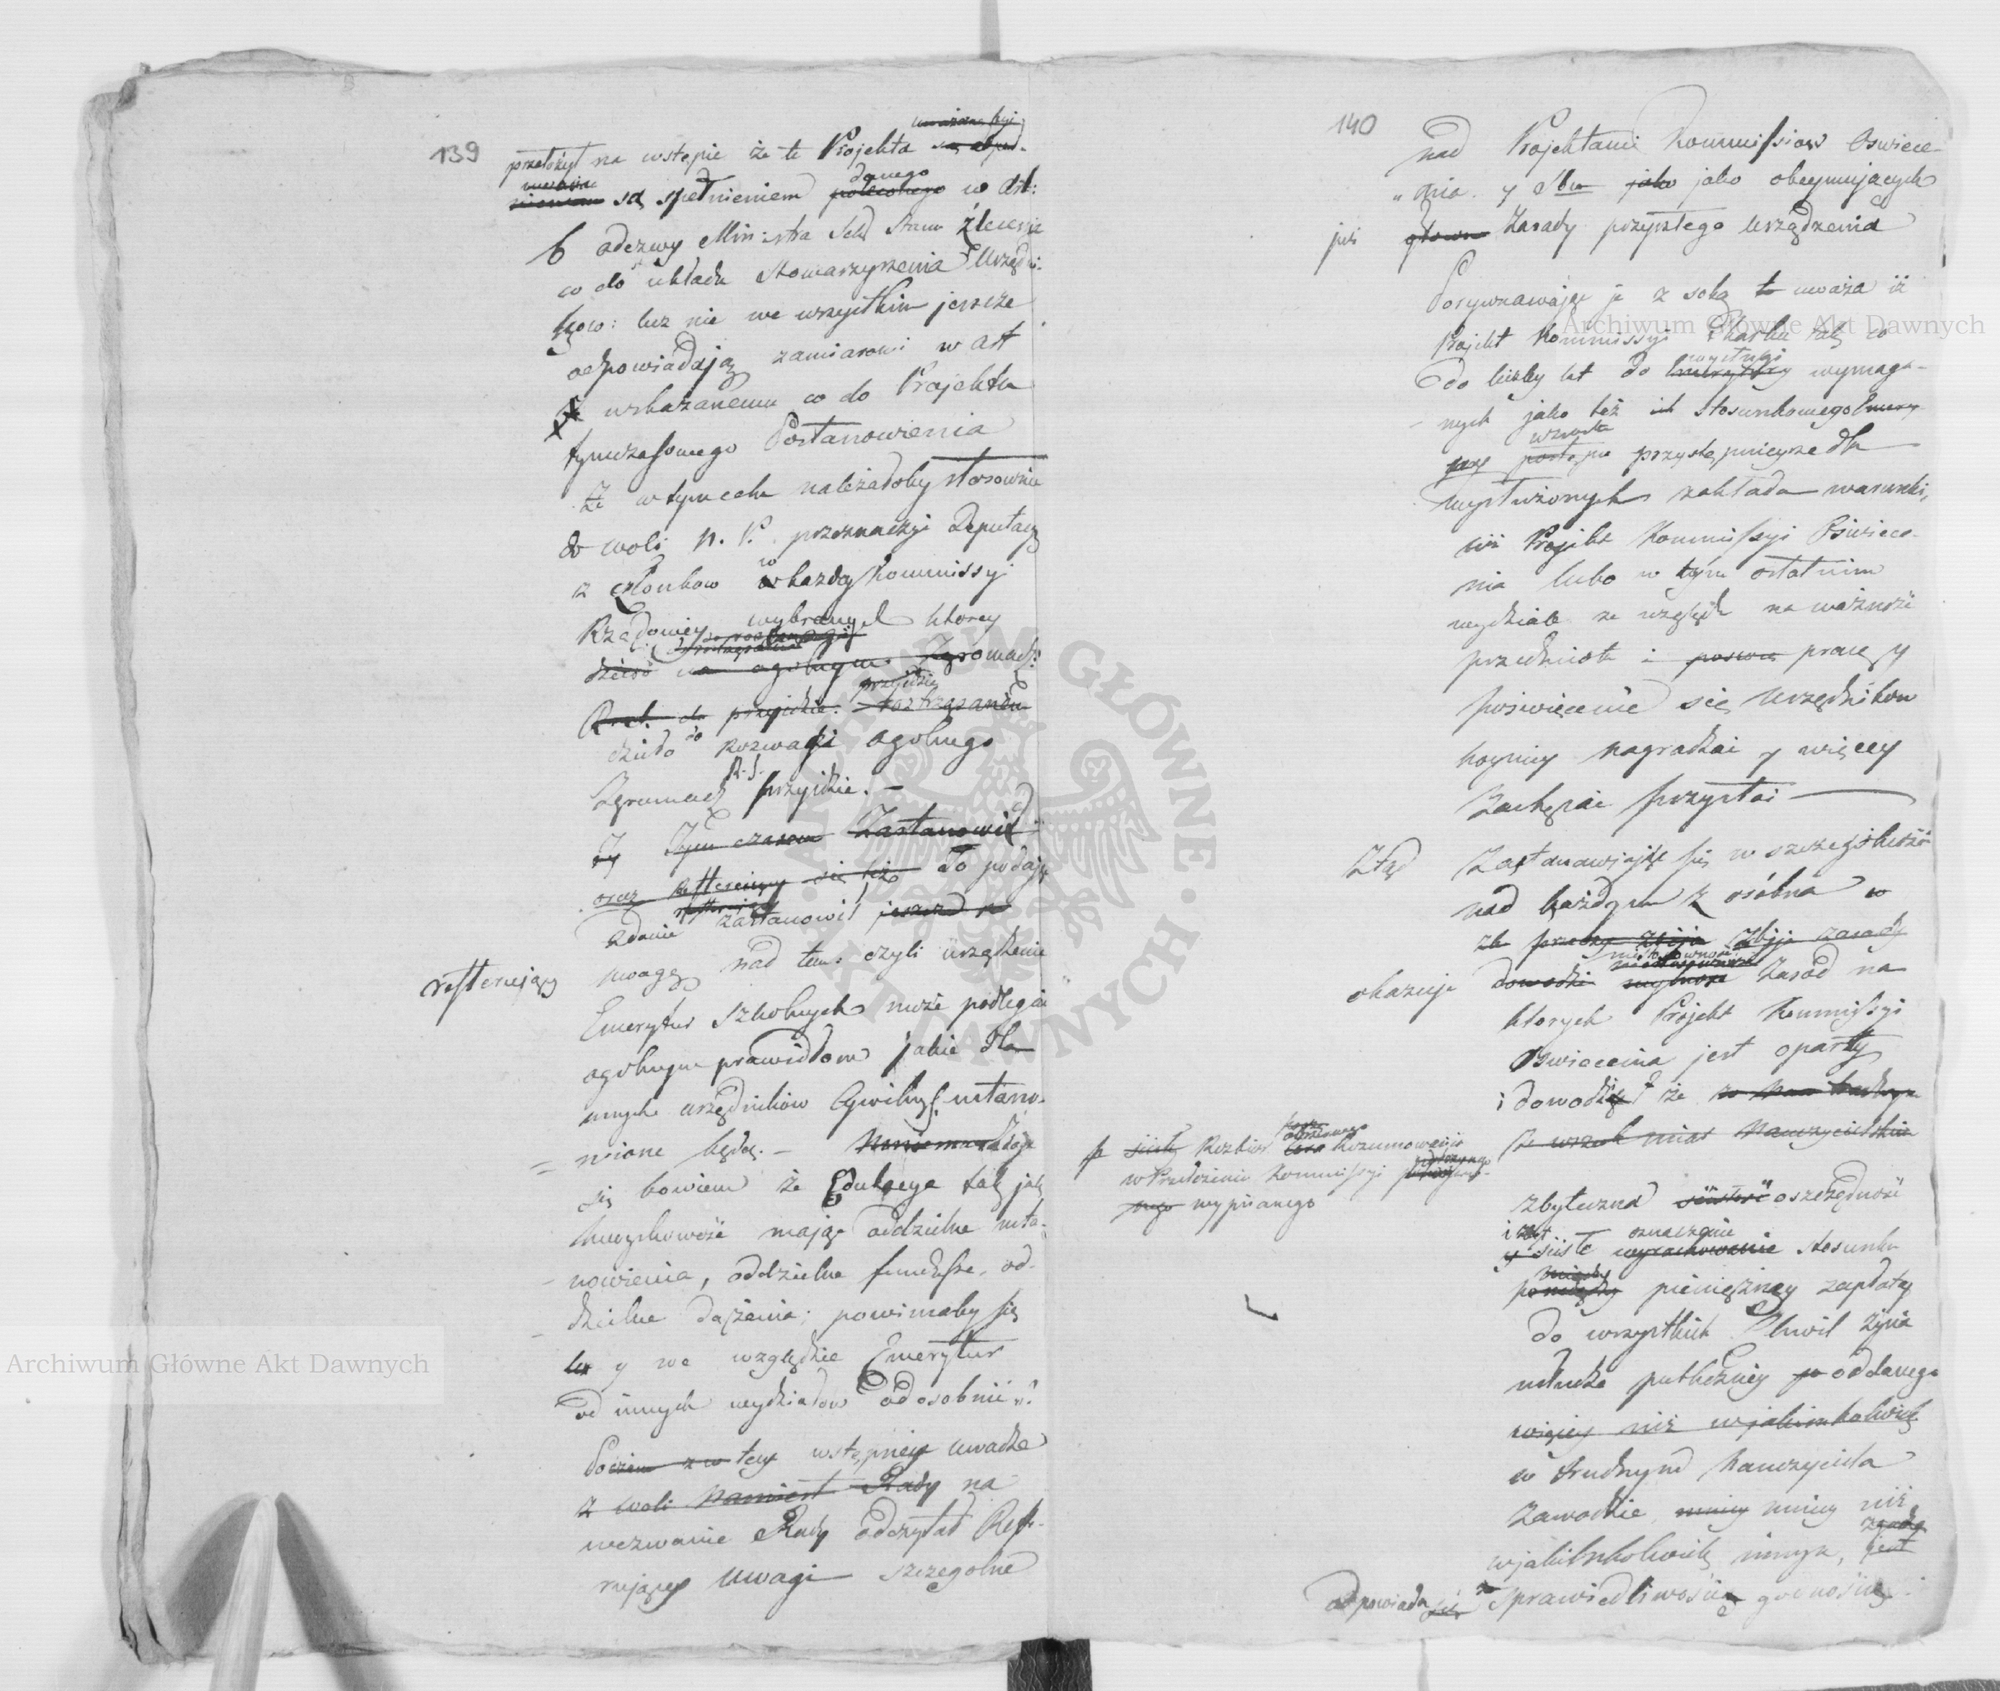 139
przełożył na wstępie że te Projekta
są spełnieniem danego w art:
6 odezwy Ministra Sekr Stanu zlecenia
co do układu Stowarzyszenia Urzędni-
ków: lecz nie we wszystkim jeszcze
odpowiadają zamiarowi w art
wskazanemu co do Projektu
tymczasowego Postanowienia
Że w tym celu należałoby stosownie
do woli N. P. przeznaczyć Deputacyę
z członków w każdey Kommissyi
Rządowey wybranych ktorey
dzieło na ogólnym Zgromadz:
Rad. do przyidzie.
dzieło do rozwagi ogolnego
Zgromadz R. S. przyidzie. —
Tym czasem Zastanowić
oraz To podaję
zdanie zastanowić jeszcze
refferujący uwagę nad tem. czyli urządzenie
Emerytur Szkolnych może podlegać
ogolnym prawidłom jakie dla
innych urzędników Cywilnych ustano-
wione będą. — Zdaje
się bowiem że Edukacya tak jak
Woyskowość mając oddzielne usta-
nowienia, oddzielne fundusze, od-
dzielne dążenia; powinnaby się
y we względzie Emerytur
od innych wydziałów odosobnić.
Poczem tey wstępney uwadze
z woli Namiest Rady na
wezwanie Rady odczytał Reffe-
rujący Uwagi szczegolne
140
nad Projektami Kommissiow Oswiece-
nia y Sbu jako jako obeymujących
już głowne Zasady przyszłego urządzenia
Porywnawając je z sobą uważa iż
Projekt Kommissyi Skarbu tak co
do liczby lat do wysługi wymaga-
nych jako też Stosunkowego
wzrostu przystępnieysze dla
wysłużonych zakłada warunki,
niż Projekt Kommissyi Oświece-
nia lubo w tym ostatnim
wydziale ze względu na ważność
przedmiotu i pracę y
poswięcenie się Urzędnikow
hoyniey nagradzać y więcey
Zachęcać przystoi —
Ztąd Zastanawiając się w szczegolności
nad każdym z osobna
zbija zasady
okazuje dowodzi Zasad na
ktorych Projekt Kommissyi
Oswiecenia jest oparty
i dowodzi że
Rozbior Rozumowania
w Przełożeniu Kommissyi
wypisanego
zbyteczna oszczędność
i zbyt ściśłe oznaczenie stosunku
między pieniężney zapłaty
do wszystkich Chwil życia
usłudze publiczney oddanego
więcey niż w jakimkolwiek
w trudnym Nauczyciela
Zawodzie, mniey niż
w jakimkolwiek innym,
odpowiada Sprawiedliwości godności
Archiwum Główne Akt Dawnych
Archiwum Główne Akt Dawnych
ARCHIWUM GŁÓWNE AKT DAWNYCH